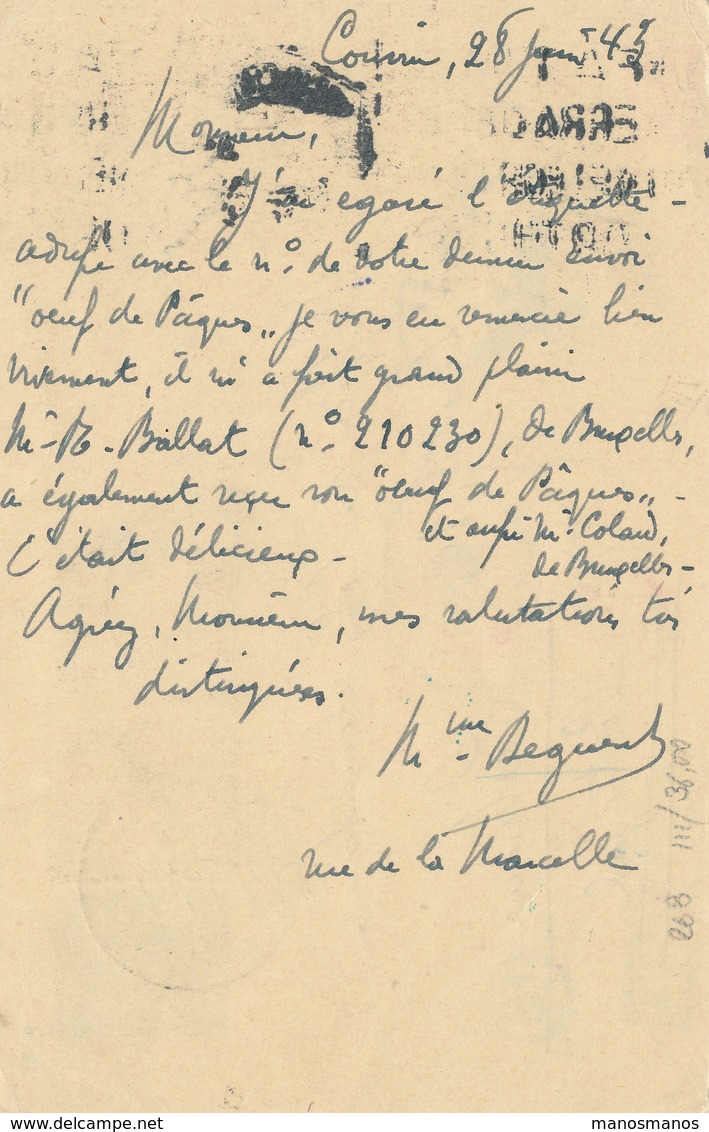 Couvin, 28 juin 43
Monsieur,
J'ai égaré l'étiquette-
adresse avec le n° de votre dernier envoi
"oeuf de Pâques". Je vous en remercie bien
vivement, il m'a fait grand plaisir
Mr R. Ballat (n° 210230), de Bruxelles,
a également reçu son "oeuf de Pâques" -
et aussi Mr Colard,
de Bruxelles -
C'était délicieux -
Agréez, Monsieur, mes salutations très
distinguées.
Mme Beguent
rue de la Marcelle
268 III/36,00
manosmanos